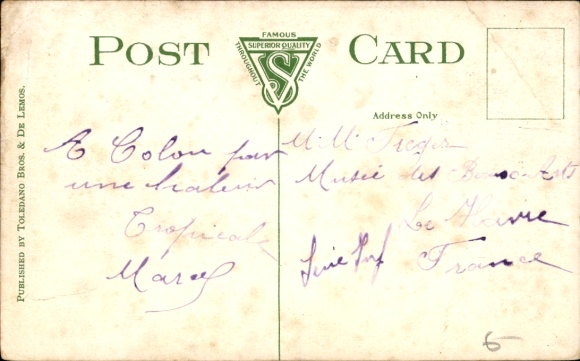 POST CARD
FAMOUS
SUPERIOR QUALITY
THROUGHOUT THE WORLD
VS
Address Only
PUBLISHED BY TOLEDANO BROS. & DE LEMOS.
A Colon par
une chaleur
Tropicale
Marcel
M. M.
Musée des Beaux-Arts
Le Havre
Seine Inf
France
6